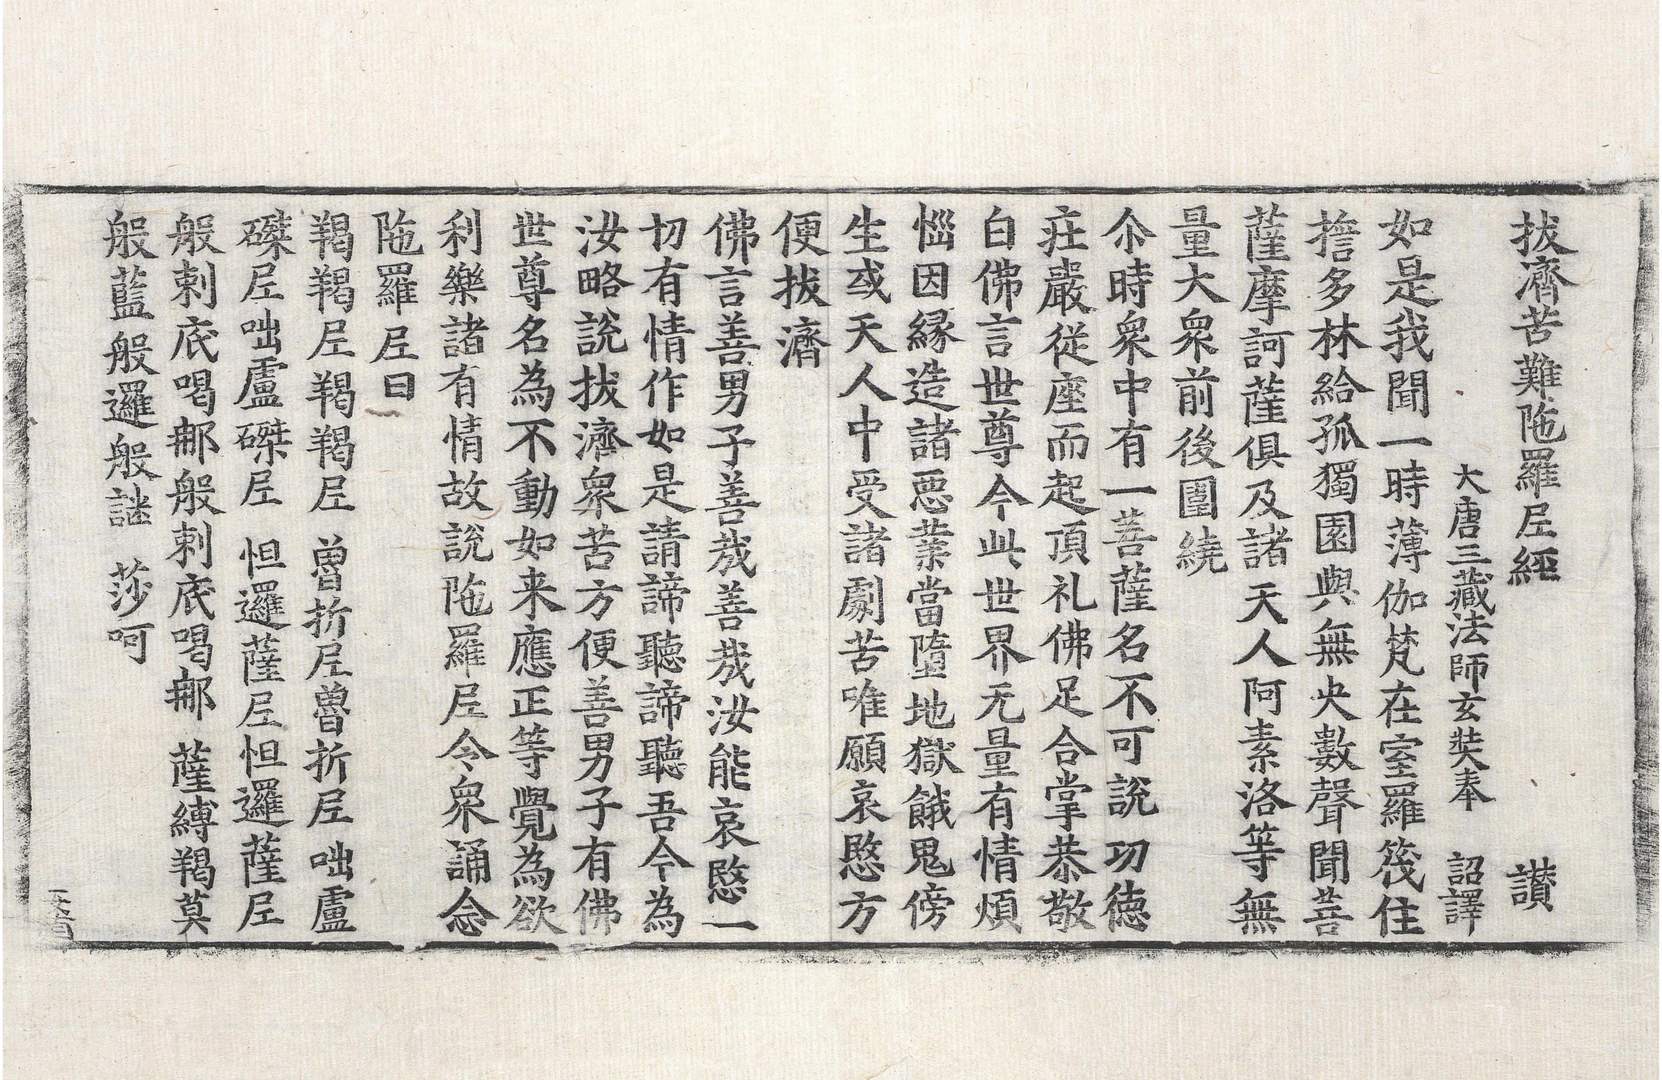 拔濟苦難陁羅𡰱經　讃
大唐三藏法師玄奘奉　詔譯
如是我聞一時薄伽梵在室羅筏住
擔多林給孤獨園與無央數聲聞菩
薩摩訶薩俱及諸天人阿素洛等無
量大衆前後圍繞
尒時衆中有一菩薩名不可說功德
莊嚴從座而起頂礼佛足合掌恭敬
白佛言世尊今此世界无量有情煩
惱因縁造諸惡業當墮地獄餓鬼傍
生或天人中受諸劇苦唯願哀愍方
便拔濟
佛言善男子善哉善哉汝能哀愍一
切有情作如是請諦聽諦聽吾今為
汝略說拔濟衆苦方便善男子有佛
世尊名為不動如来應正等覺為欲
利樂諸有情故說陁羅𡰱令衆誦念
陁羅𡰱曰
羯羯𡰱羯羯𡰱　魯折𡰱魯折𡰱咄盧
磔𡰱咄盧磔𡰱　怛邏薩𡰱怛邏薩𡰱
般剌底喝那般剌底喝那　薩縛羯莫
般藍般邏般謎　莎呵